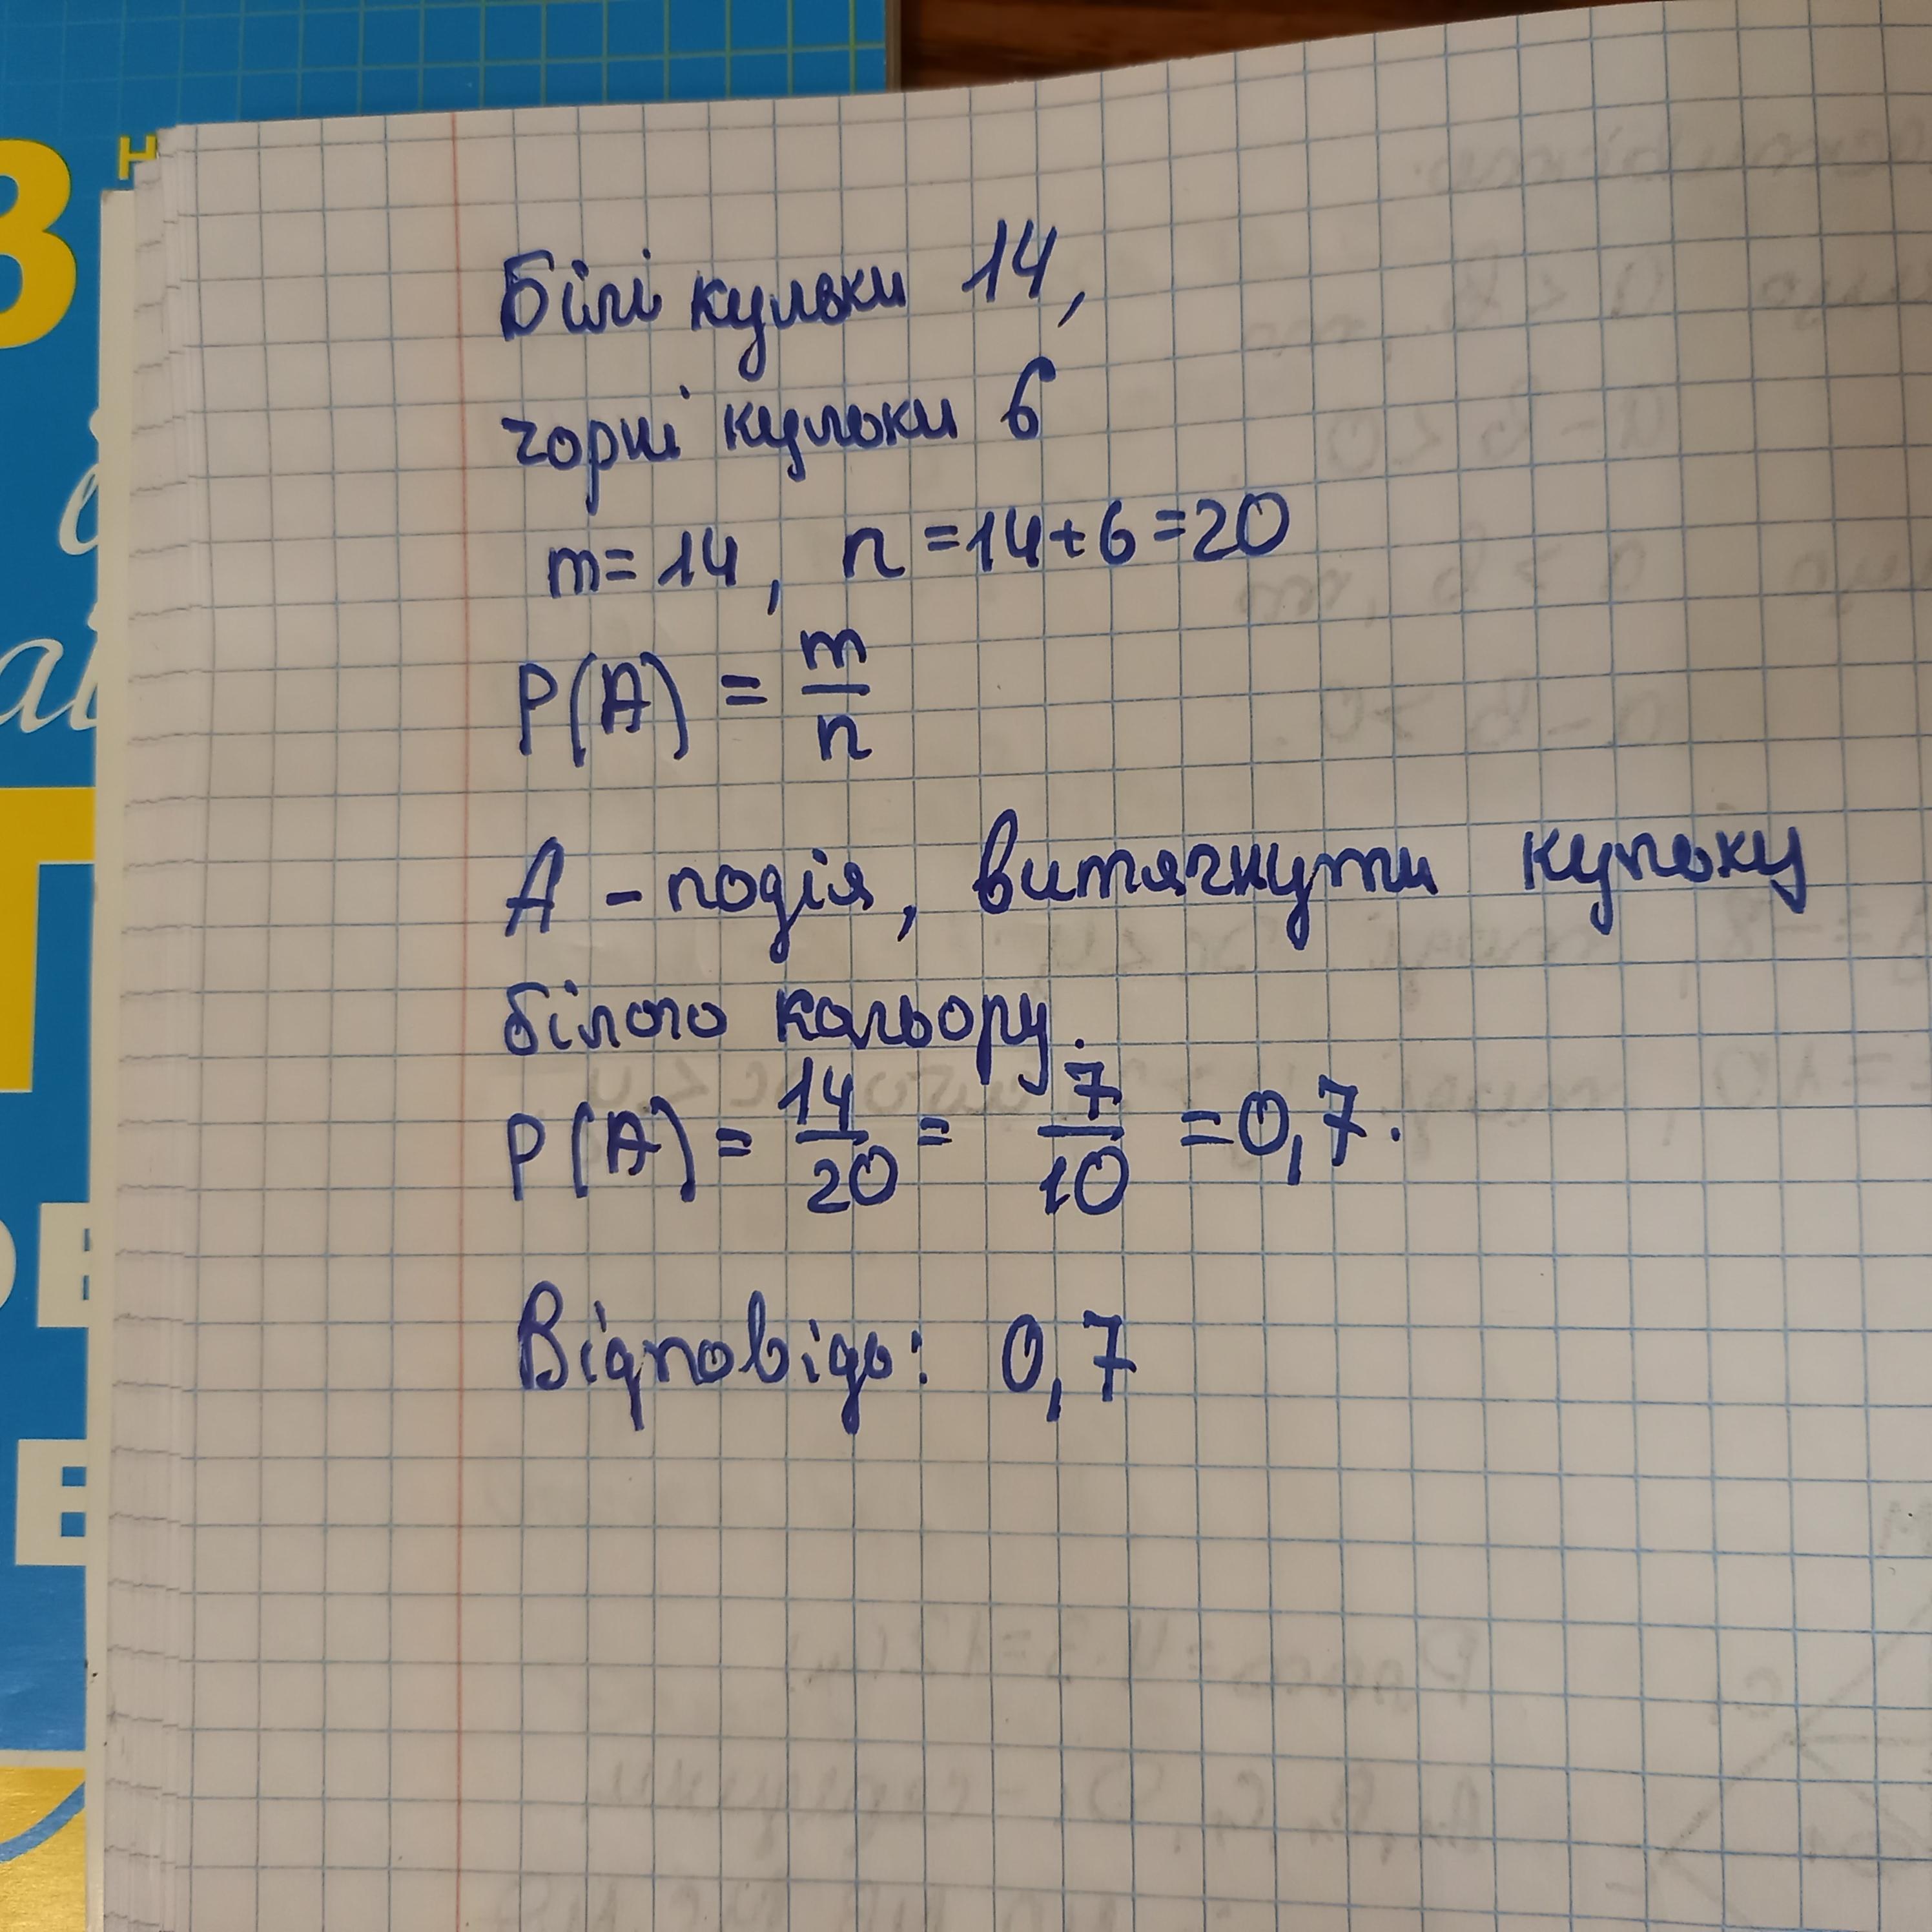 Білі кульки 14,
чорні кульки 6
m = 14, n = 14 + 6 = 20
P(A) = m/n
A – подія, витягнути кульку
білого кольору.
P(A) = 14/20 = 7/10 = 0,7.
Відповідь: 0,7